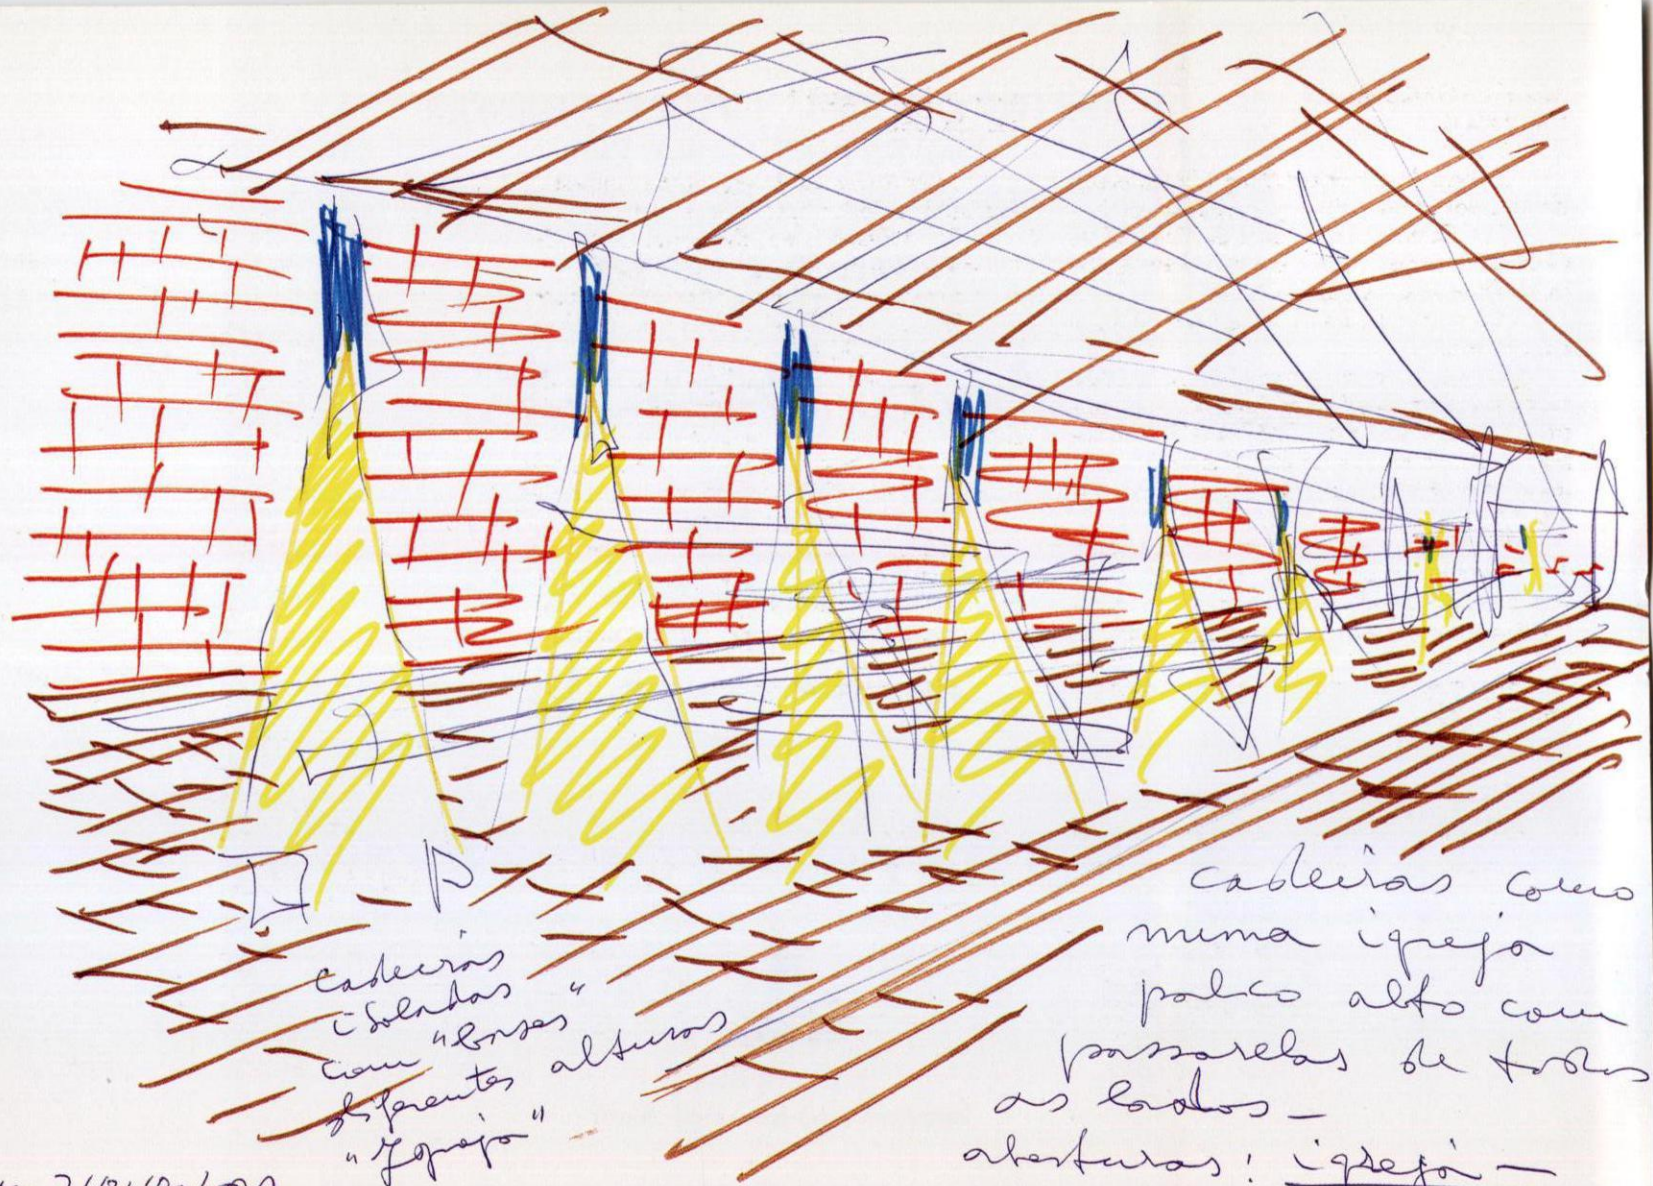 cadeiras
isoladas
com "bases"
diferentes alturas
"Igreja"
cadeiras como
numa igreja
palco alto com
passarelas de todos
os lados –
aberturas! igreja –